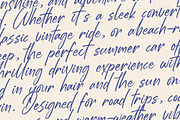 nshine, and adventure
. Whether it's a sleek convert
assic vintage ride, or a beach-r
ep, the perfect summer car of
hrilling driving experience with
d in your hair and the sun on
in. Designed for road trips, cou
and warm-weather vib